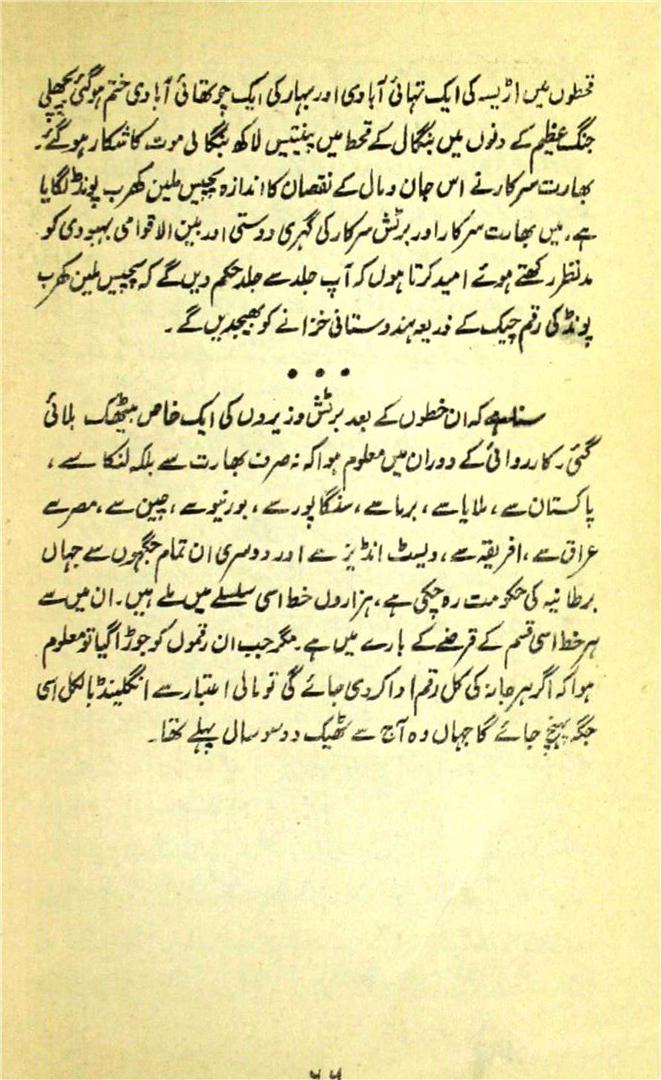 قحطوں میں اڑیسہ کی ایک تہائی آبادی اور بہار کی ایک چوتھائی آبادی ختم ہو گئی پچھلی
جنگ عظیم کے دنوں میں بنگال کے قحط میں پینتیس لاکھ بنگالی موت کا شکار ہو گئے۔
بھارت سرکار نے اس جان و مال کے نقصان کا اندازہ پچیس ملین کھرب پونڈ لگایا
ہے، میں بھارت سرکار اور برٹش سرکار کی گہری دوستی اور بین الاقوامی بہبودی کو
مدنظر رکھتے ہوئے امید کرتا ہوں کہ آپ جلد سے جلد حکم دیں گے کہ پچیس ملین کھرب
پونڈ کی رقم چیک کے ذریعہ ہندوستانی خزانے کو بھیجدیں گے۔
• • •
سنا ہے کہ ان خطوں کے بعد برٹش وزیروں کی ایک خاص بیٹھک بلائی
گئی، کارروائی کے دوران میں معلوم ہوا کہ نہ صرف بھارت سے بلکہ لنکا سے،
پاکستان سے، ملایا سے، برما سے، سنگاپور سے، بورنیو سے، چین سے، مصر سے
عراق سے، افریقہ سے، ویسٹ انڈیز سے اور دوسری ان تمام جگہوں سے جہاں
برطانیہ کی حکومت رہ چکی ہے، ہزاروں خط اسی سلسلے میں ملے ہیں۔ ان میں سے
ہر خط اسی قسم کے قرضے کے بارے میں ہے۔ مگر جب ان رقموں کو جوڑا گیا تو معلوم
ہوا کہ اگر ہرجانہ کی کل رقم ادا کر دی جائے گی تو مالی اعتبار سے انگلینڈ بالکل اسی
جگہ پہنچ جائے گا جہاں وہ آج سے ٹھیک دو سو سال پہلے تھا۔